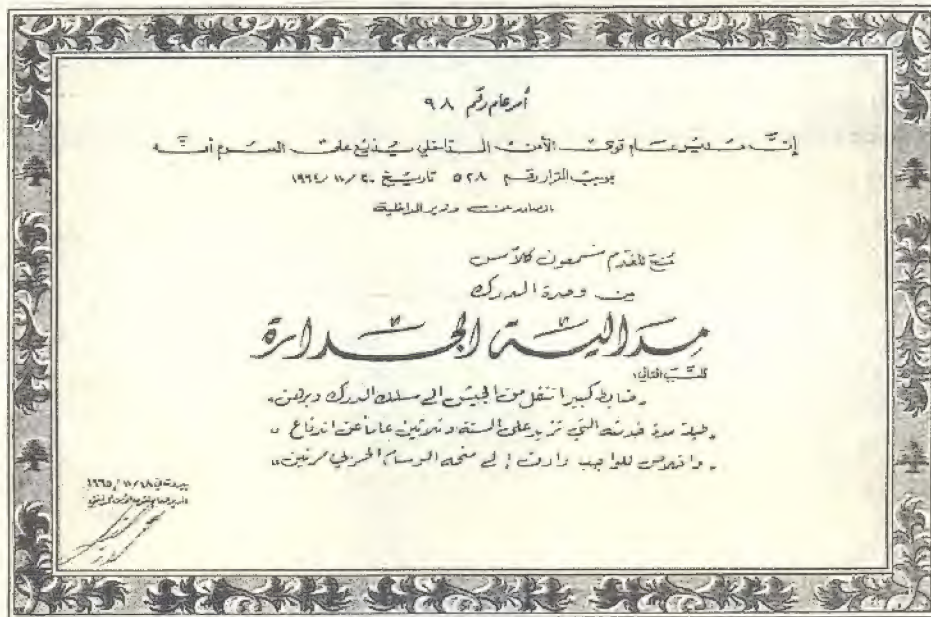 أمر عام رقم ٩٨
إن مدير عام قوى الأمن الداخلي يذيع على العموم أنه
بموجب القرار رقم ٥٢٨ تاريخ
الصادر عن وزير الداخلية
منح المقدم شمعون كلاس
من وحدة الدرك
مدالية الجدارة
للسبب التالي:
« ضابط كبير انتقل من الجيش الى سلك الدرك وبرهن »
« طيلة مدة خدمته التي تزيد على الستة وثلاثين عاماً عن اندفاع »
« واخلاص للواجب إلى منحه الوسام الحربي مرتين »
بيروت في